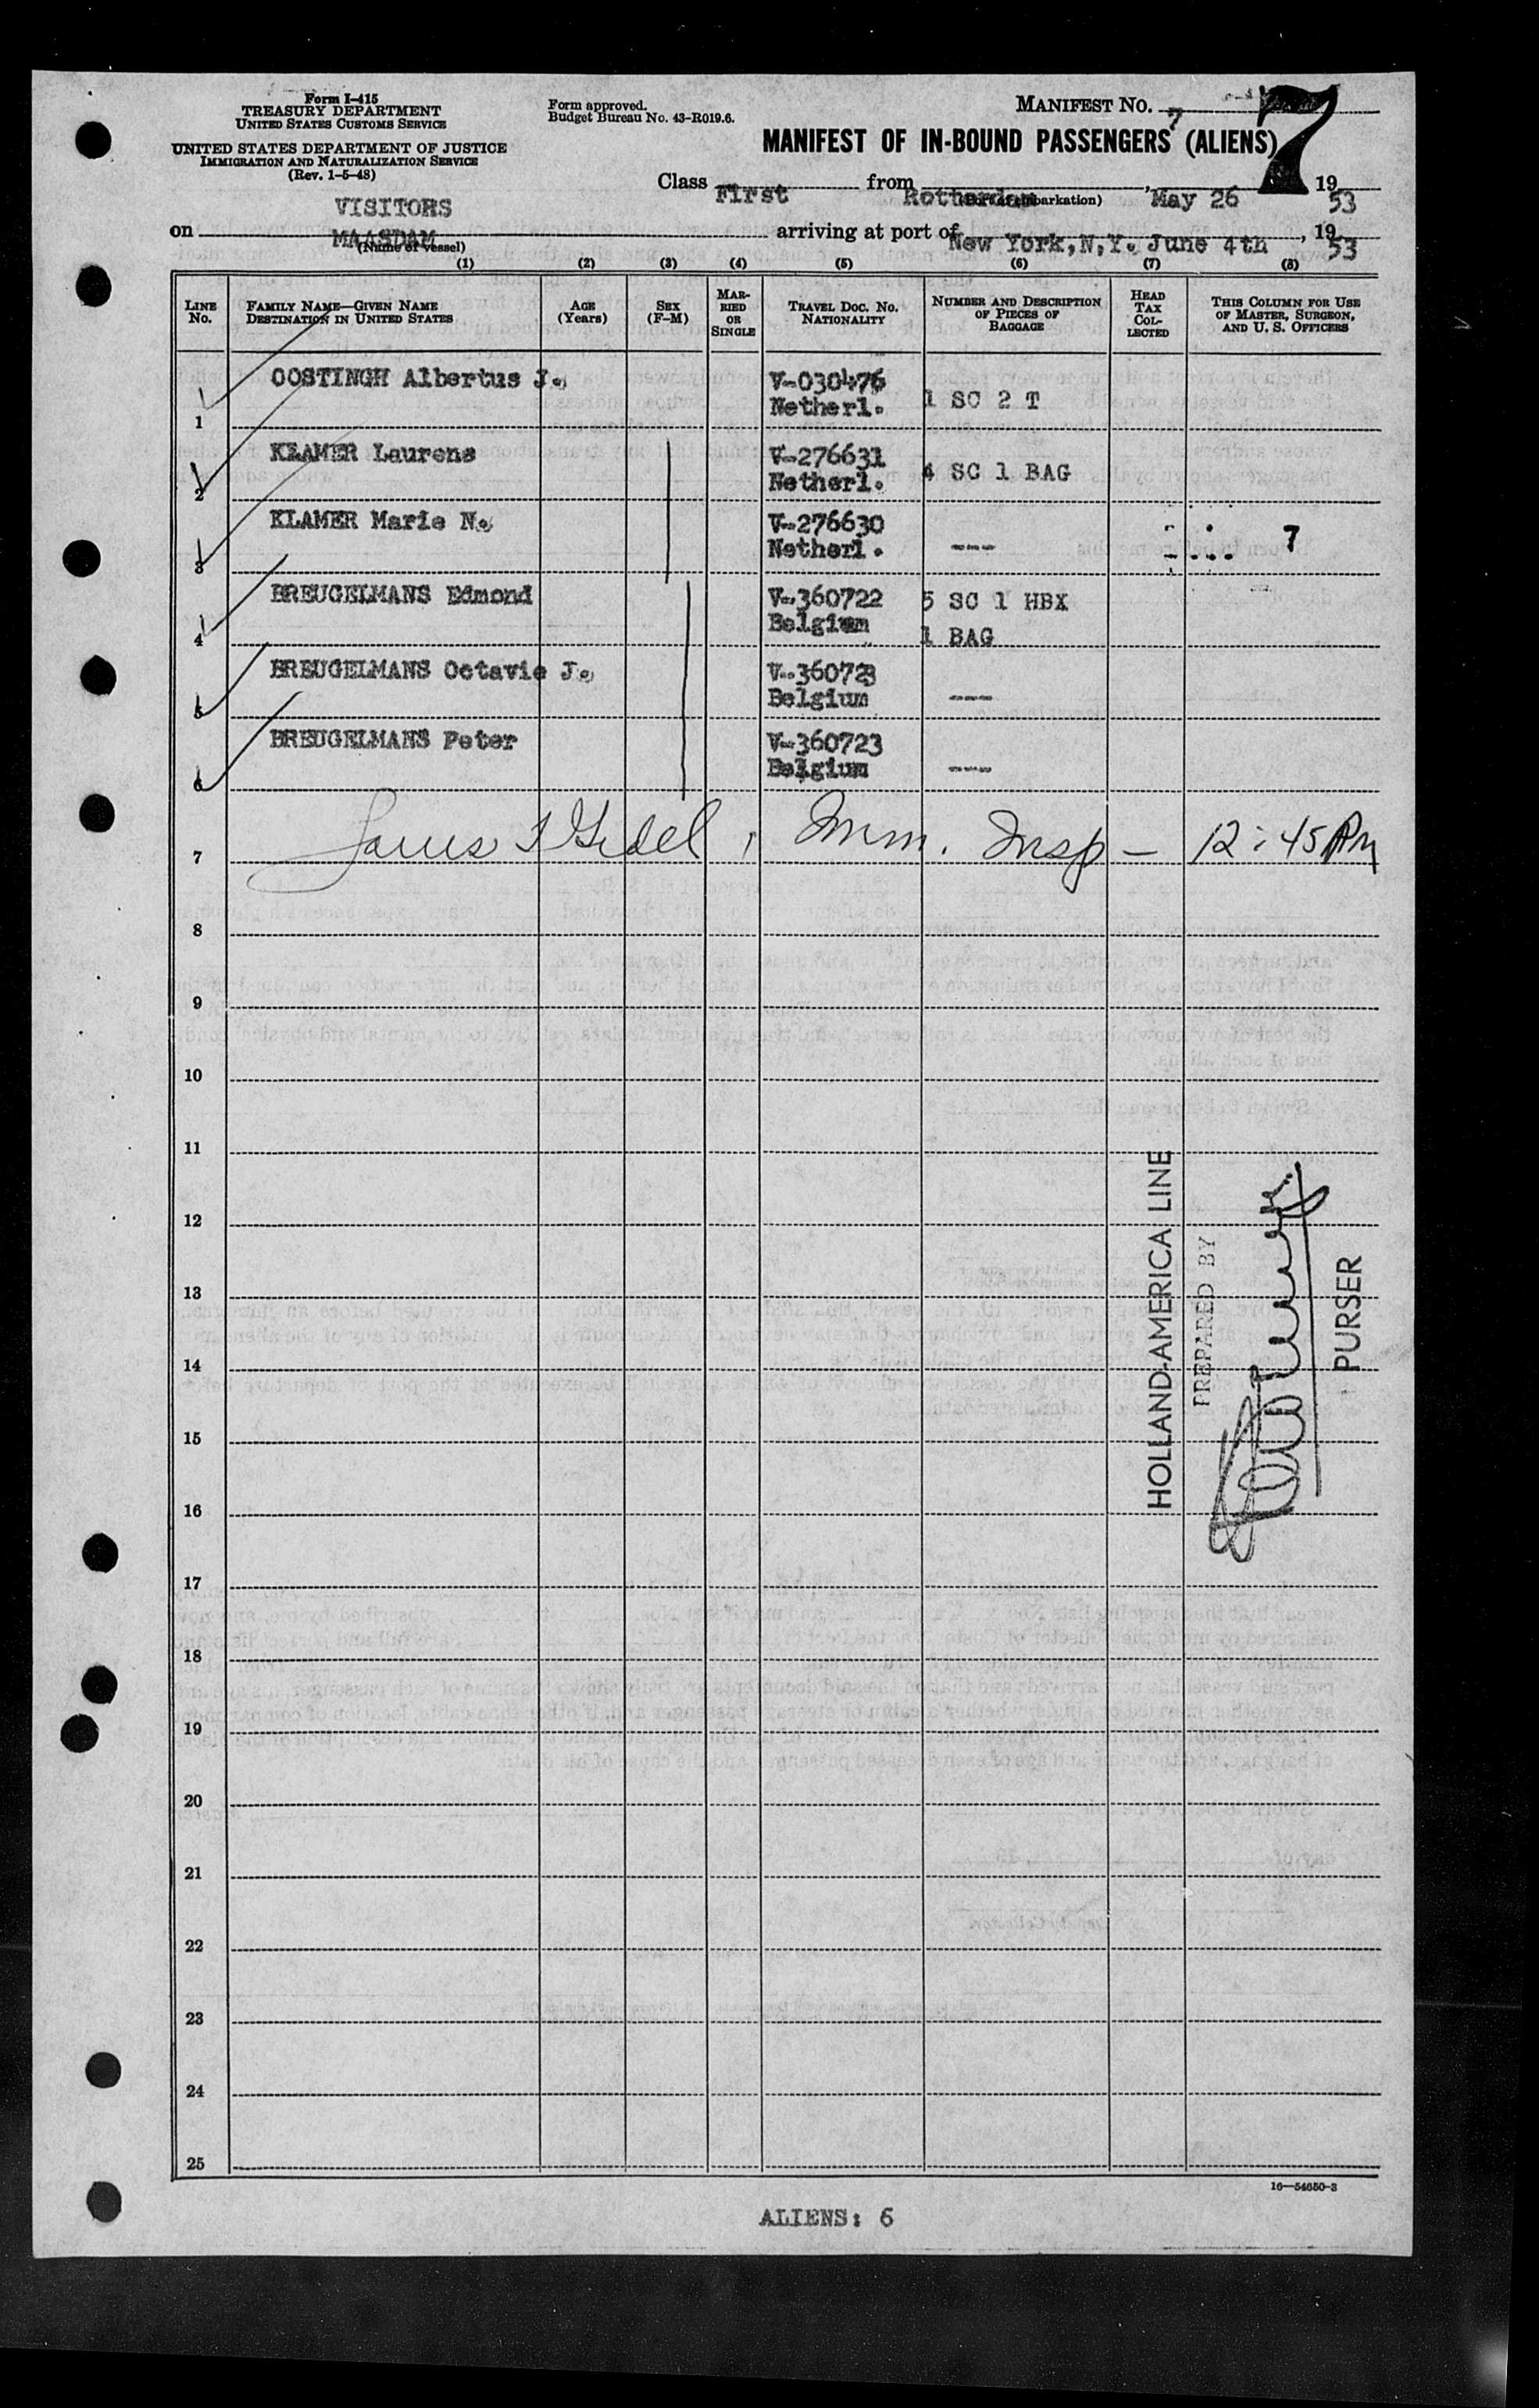 Form I-415
TREASURY DEPARTMENT
UNITED STATES CUSTOMS SERVICE
UNITED STATES DEPARTMENT OF JUSTICE
IMMIGRATION AND NATURALIZATION SERVICE
(Rev. 1-5-48)
Form approved.
Budget Bureau No. 43-R019.6.
MANIFEST NO. 7
7
MANIFEST OF IN-BOUND PASSENGERS (ALIENS)
Class First from Rotterdam, May 26 1953
(Port of embarkation)
VISITORS
on MAASDAM arriving at port of New York, N.Y. June 4th, 1953
(Name of vessel)
(1) (2) (3) (4) (5) (6) (7) (8)
LINE No. FAMILY NAME—GIVEN NAME DESTINATION IN UNITED STATES AGE (Years) SEX (F-M) MARRIED OR SINGLE TRAVEL DOC. NO. NATIONALITY NUMBER AND DESCRIPTION OF PIECES OF BAGGAGE HEAD TAX COLLECTED THIS COLUMN FOR USE OF MASTER, SURGEON, AND U. S. OFFICERS
1 OOSTINGH Albertus J. V-030476 Netherl. 1 SC 2 T
2 KLAMER Laurens V-276631 Netherl. 4 SC 1 BAG
3 KLAMER Marie N. V-276630 Netherl. --- 7
4 BREUGELMANS Edmond V-360722 Belgium 5 SC 1 HBX 1 BAG
5 BREUGELMANS Octavie J. V-360723 Belgium ---
6 BREUGELMANS Peter V-360723 Belgium ---
7 Imm. Insp - 12:45 PM
8
9
10
11
12
13
14
15
16
17
18
19
20
21
22
23
24
25
HOLLAND-AMERICA LINE
PREPARED BY
PURSER
16—54650-3
ALIENS: 6